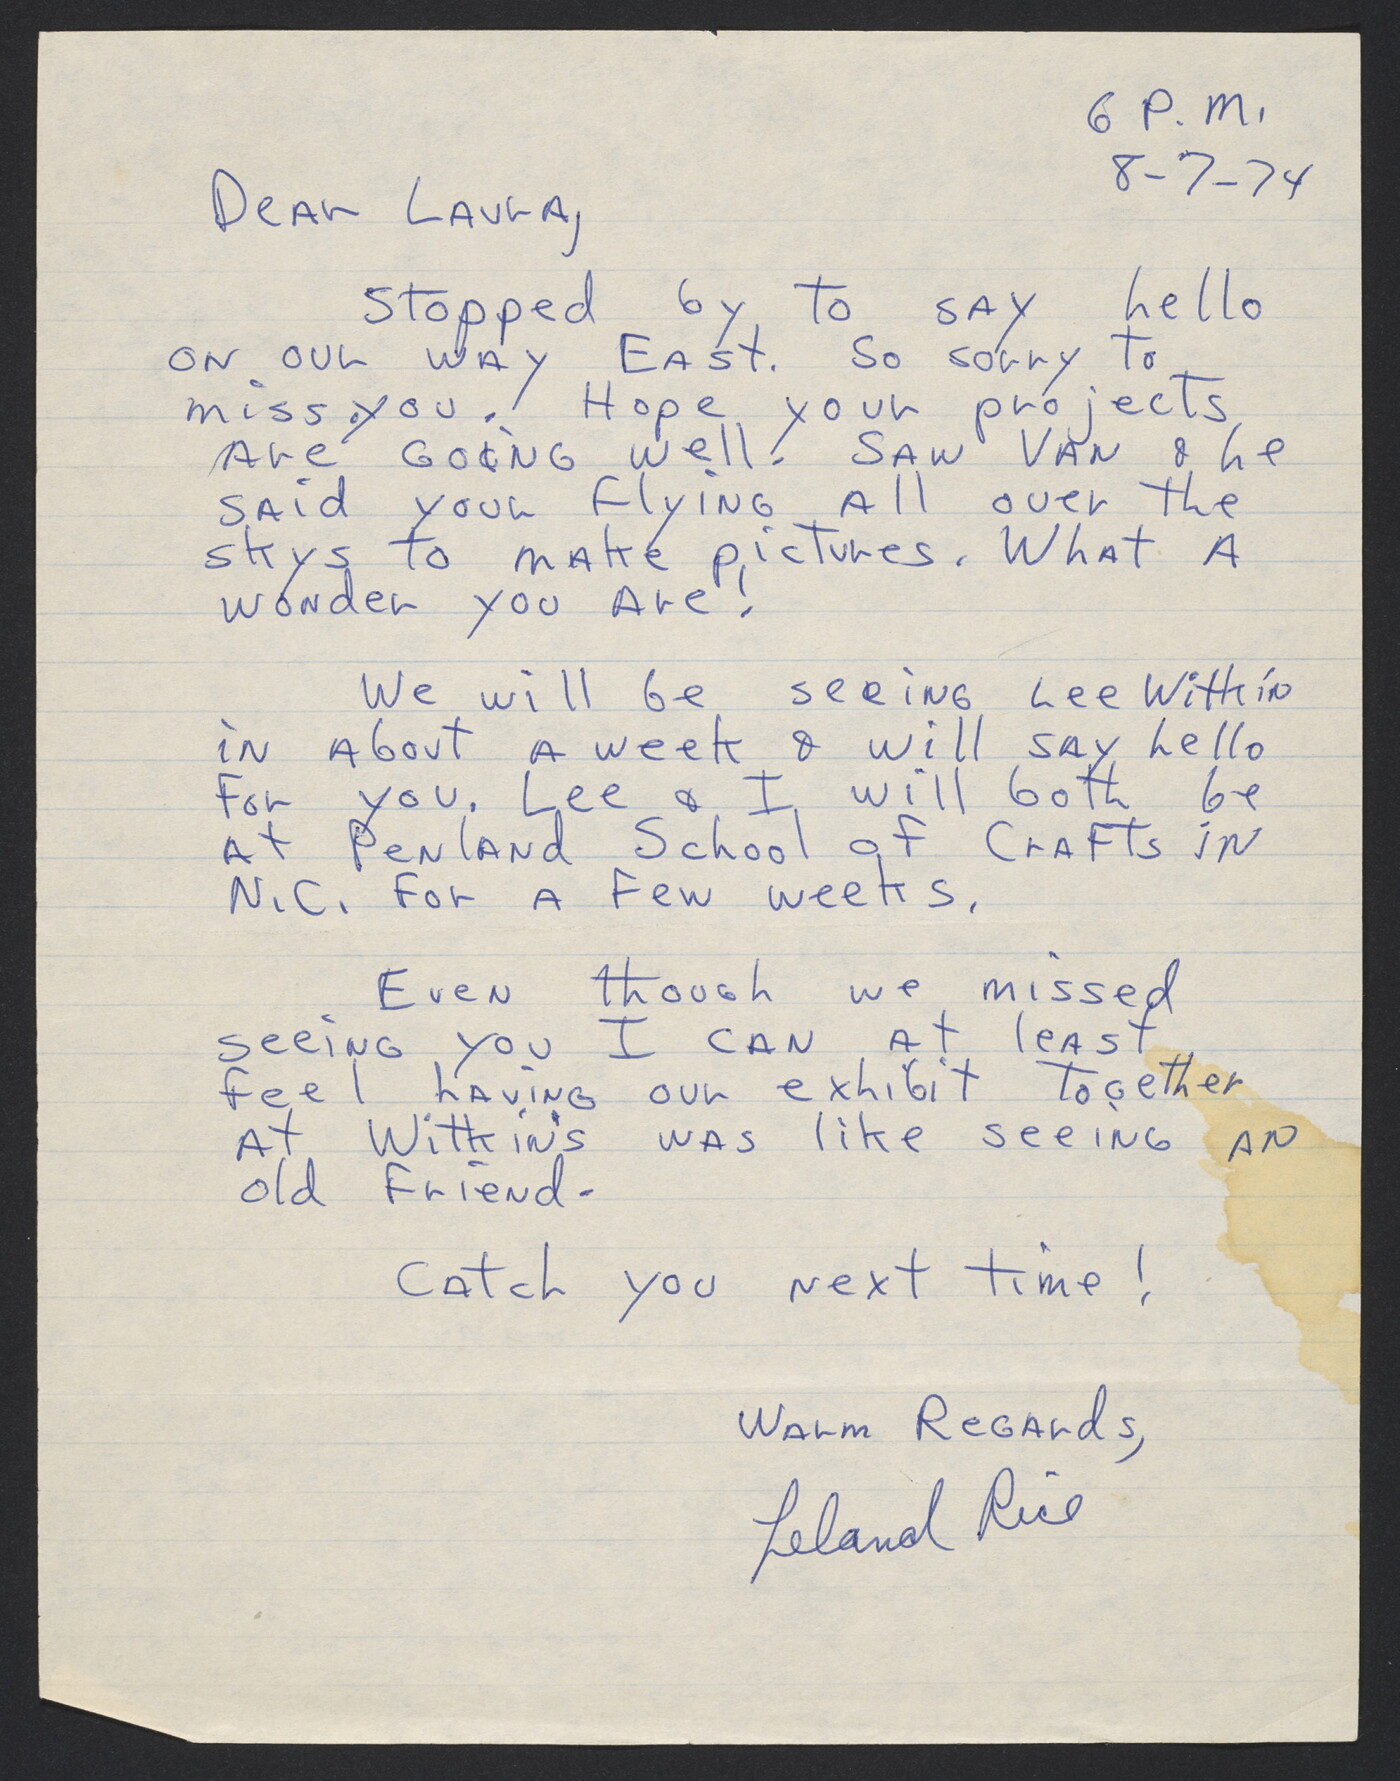 6 P.M.
8-7-74
Dear Laura,
Stopped by to say hello
on our way East. So sorry to
miss you! Hope your projects
are going well. Saw Van & he
said your flying all over the
skys to make pictures. What a
wonder you are!
We will be seeing Lee Witkin
in about a week & will say hello
for you. Lee & I will both be
at Penland School of Crafts in
N.C. for a few weeks.
Even though we missed
seeing you I can at least
feel having our exhibit together
at Witkin's was like seeing an
old friend.
Catch you next time!
Warm Regards,
Leland Rice